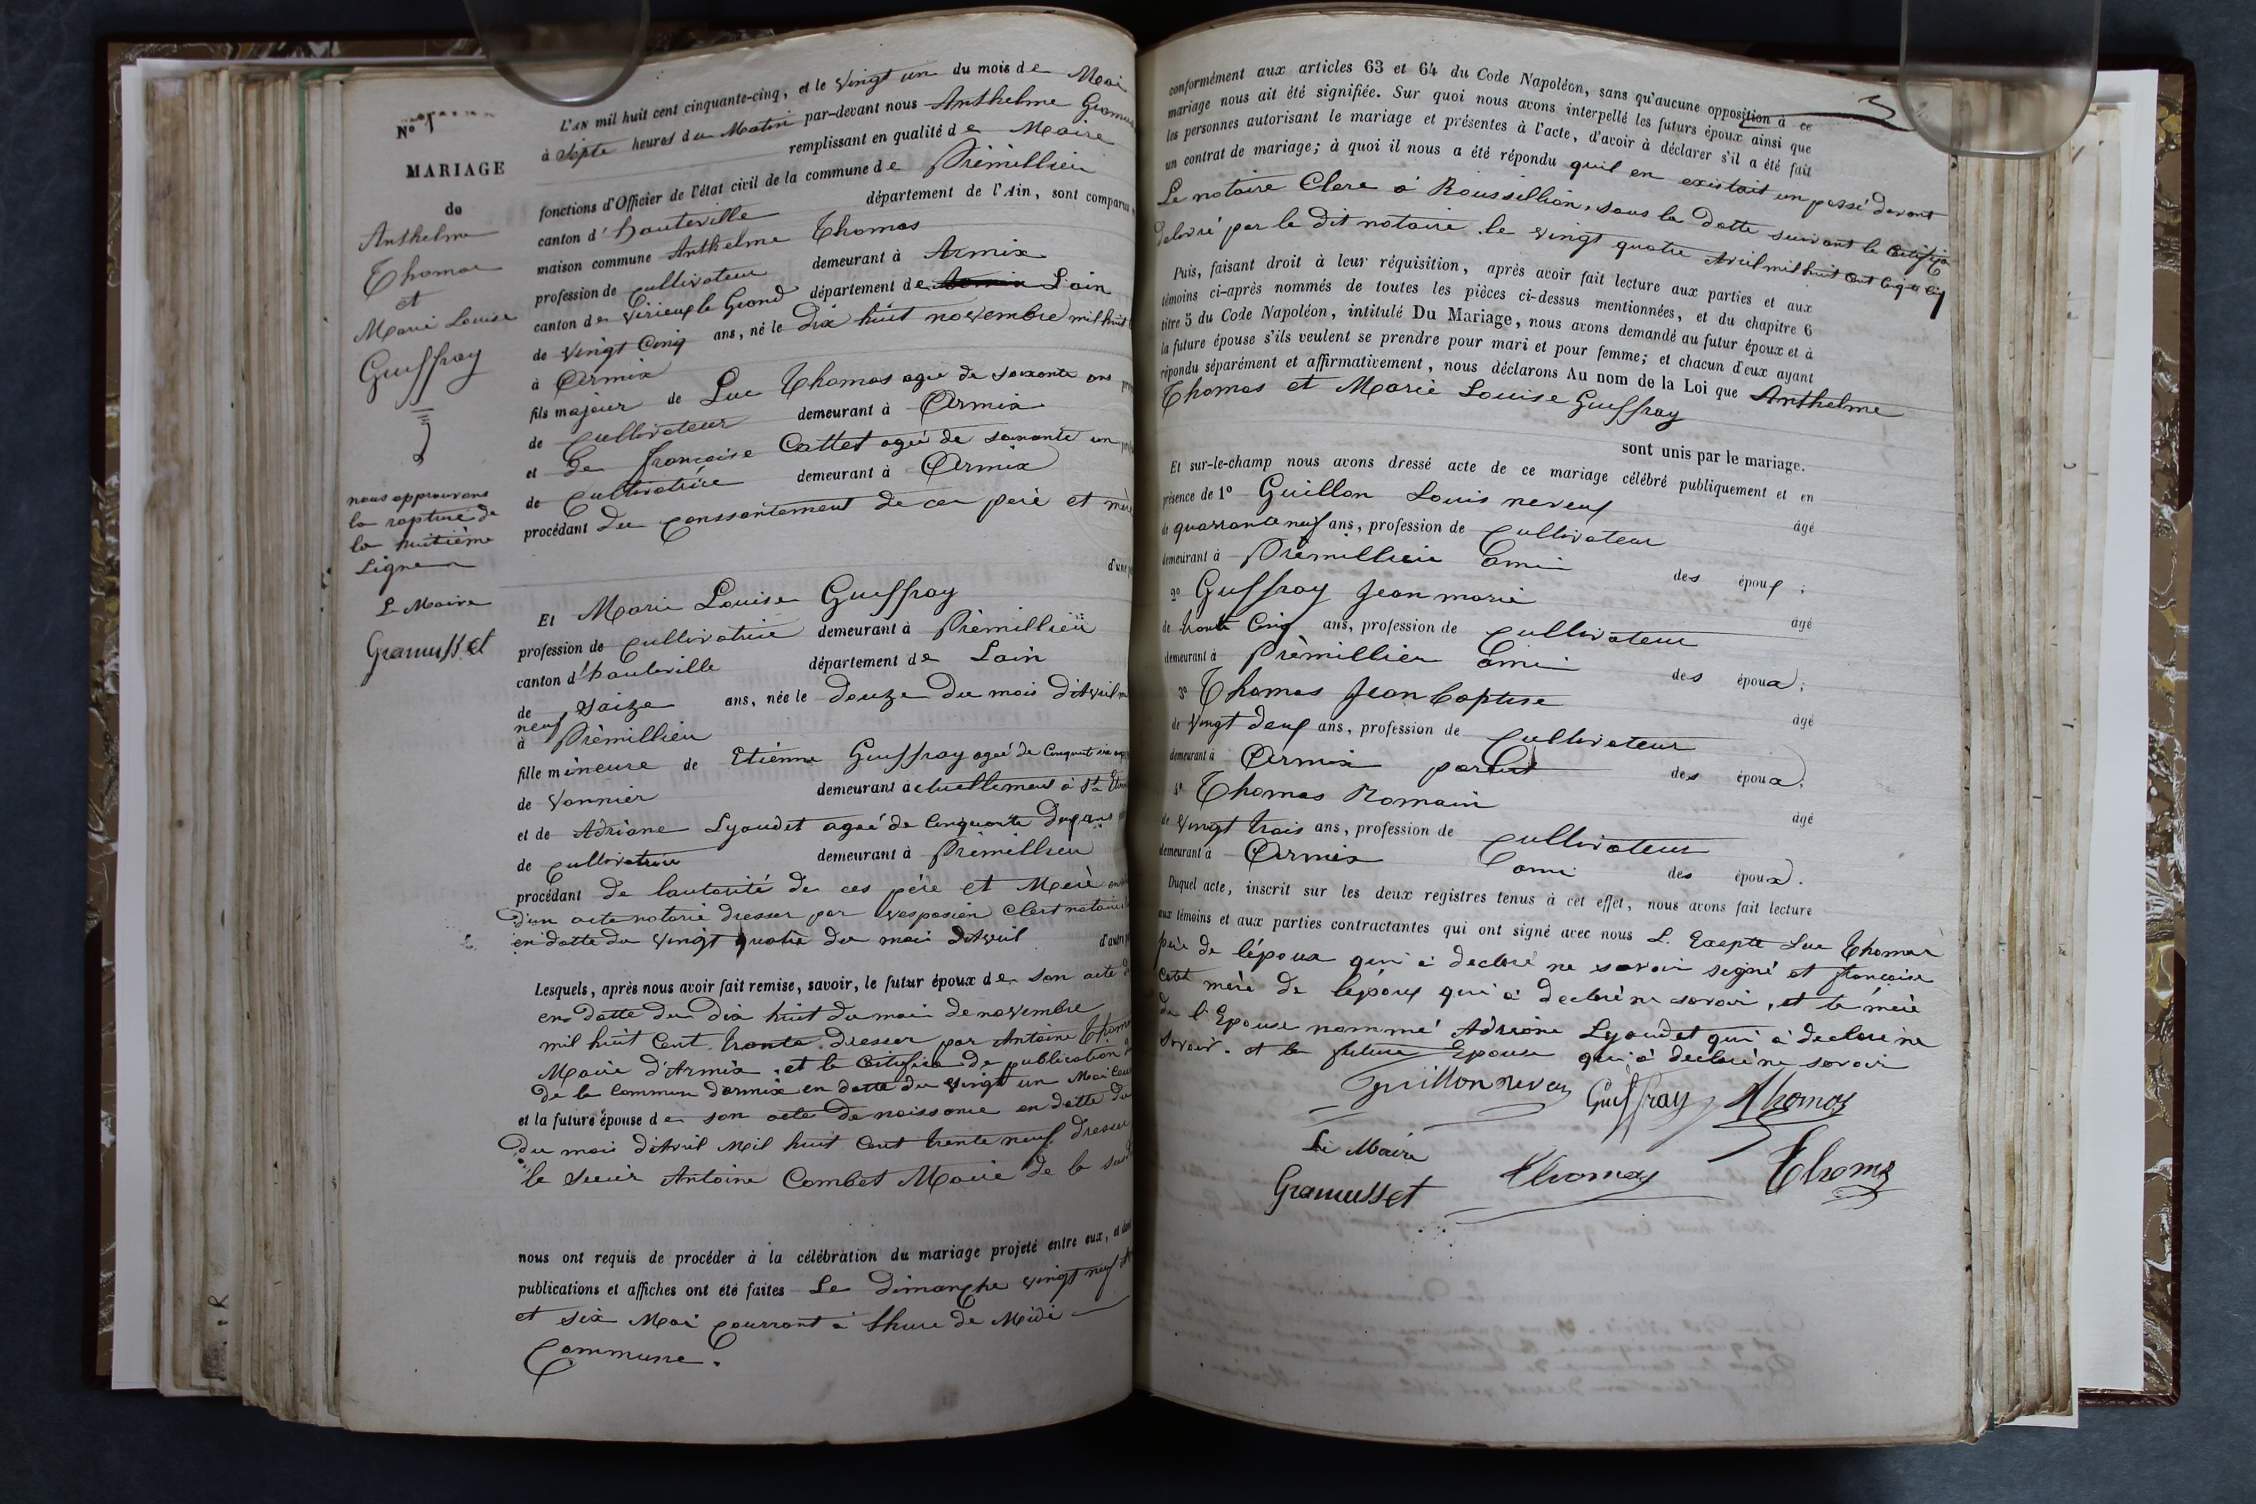 Nº 1
MARIAGE
de
Anthelme
Thomas
et
Marie Louise
Guffray
nous approuvons
la rapture de
la huitième
Ligne
Le Maire
Gramusset
L'AN mil huit cent cinquante-cinq, et le Vingt un du mois de Mai
à Septe heures du Matin par-devant nous Anthelme
remplissant en qualité de Maire
fonctions d'Officier de l'état civil de la commune de Prèmillieu
canton d'hauteville département de l'Ain, sont comparus
maison commune Anthelme Thomas
profession de cultivateur demeurant à Armix
canton de Virieux le Grand département de Lain
de Vingt Cinq ans, né le dix huit novembre mil huit
à Armix
fils majeur de Luc Thomas agé de soixante ans
de Cultivateur demeurant à Armix
et de françoise Cattet agée de soixante un
de Cultivatrice demeurant à Armix
procédant du conssentement de ces père et mère
Et Marie Louise Guffray
profession de cultivatrice demeurant à Prèmillieu
canton d'hauteville département de Lain
de Saize ans, née le douze du mois d'Avril
neuf
à Prèmillieu
fille mineure de Etiènne Guffray agé de Cinquante six
de Vannier demeurant actuellement à St
et de Adriane Lyaudet ageé de Cinquante deux ans
de Cultivatrice demeurant à Prèmillieu
procédant de lautorité de ces père et Merè
d'un acte notarié dresser par Vespasien Clert notaire
en datte du Vingt quatre du mois d'Avril
Lesquels, après nous avoir fait remise, savoir, le futur époux de son acte
en datte du Dix huit du mois de novembre
mil huit Cent trente dresser par Antoine
Maire d'Armix, et le Certificat de publication
de la Commune d'armix en datte du Vingt un Mai
et la future épouse de son acte de naissance en datte du
du mois d'Avril Mil huit Cent trente neuf dresser
le Sieur Antoine Combet Maire de la
nous ont requis de procéder à la célébration du mariage projeté entre eux, et
publications et affiches ont été faites Le dimanche vingt neuf
et six Mai courrant à lhure de Midi
Commune.
conformément aux articles 63 et 64 du Code Napoléon, sans qu'aucune opposition à ce
mariage nous ait été signifiée. Sur quoi nous avons interpellé les futurs époux ainsi que
les personnes autorisant le mariage et présentes à l'acte, d'avoir à déclarer s'il a été fait
un contrat de mariage; à quoi il nous a été répondu quil en existait un passé devant
Le notaire Clere à Roussillion, sous la datte suivant le
delivré par le dit notaire le vingt quatre Avril mil huit Cent Cinq te Cinq
Puis, faisant droit à leur réquisition, après avoir fait lecture aux parties et aux
témoins ci-après nommés de toutes les pièces ci-dessus mentionnées, et du chapitre 6
titre 5 du Code Napoléon, intitulé Du Mariage, nous avons demandé au futur époux et à
la future épouse s'ils veulent se prendre pour mari et pour femme; et chacun d'eux ayant
répondu séparément et affirmativement, nous déclarons Au nom de la Loi que Anthelme
Thomas et Marie Louise Guffray
sont unis par le mariage.
Et sur-le-champ nous avons dressé acte de ce mariage célébré publiquement et en
présence de 1º Guillon Louis neveux
âgé
de quarrante neuf ans, profession de Cultivateur
demeurant à Prèmillieu ami des époux;
2º Guffray Jean marie
âgé
de trente Cinq ans, profession de Cultivateur
demeurant à Prèmillieu ami des époux;
3º Thomas Jean Baptise
âgé
de Vingt deux ans, profession de Cultivateur
demeurant à Armix parent des époux;
4º Thomas Romain
âgé
de Vingt trois ans, profession de cultivateur
demeurant à Armix ami des époux.
Duquel acte, inscrit sur les deux registres tenus à cet effet, nous avons fait lecture
aux témoins et aux parties contractantes qui ont signé avec nous L. Exepte Luc Thomas
père de l'époux qui à declaré ne savoir signé et françoise
Catet mère de lépoux qui à declaré ne savoir, et la mère
de l'Epouse nommé Adriane Lyaudet qui à declaré ne
savoir. et la future Epouse qui à declaré ne savoir
Guillon neveu Guffray Thomas
Le Maire
Gramusset Thomas Thomas